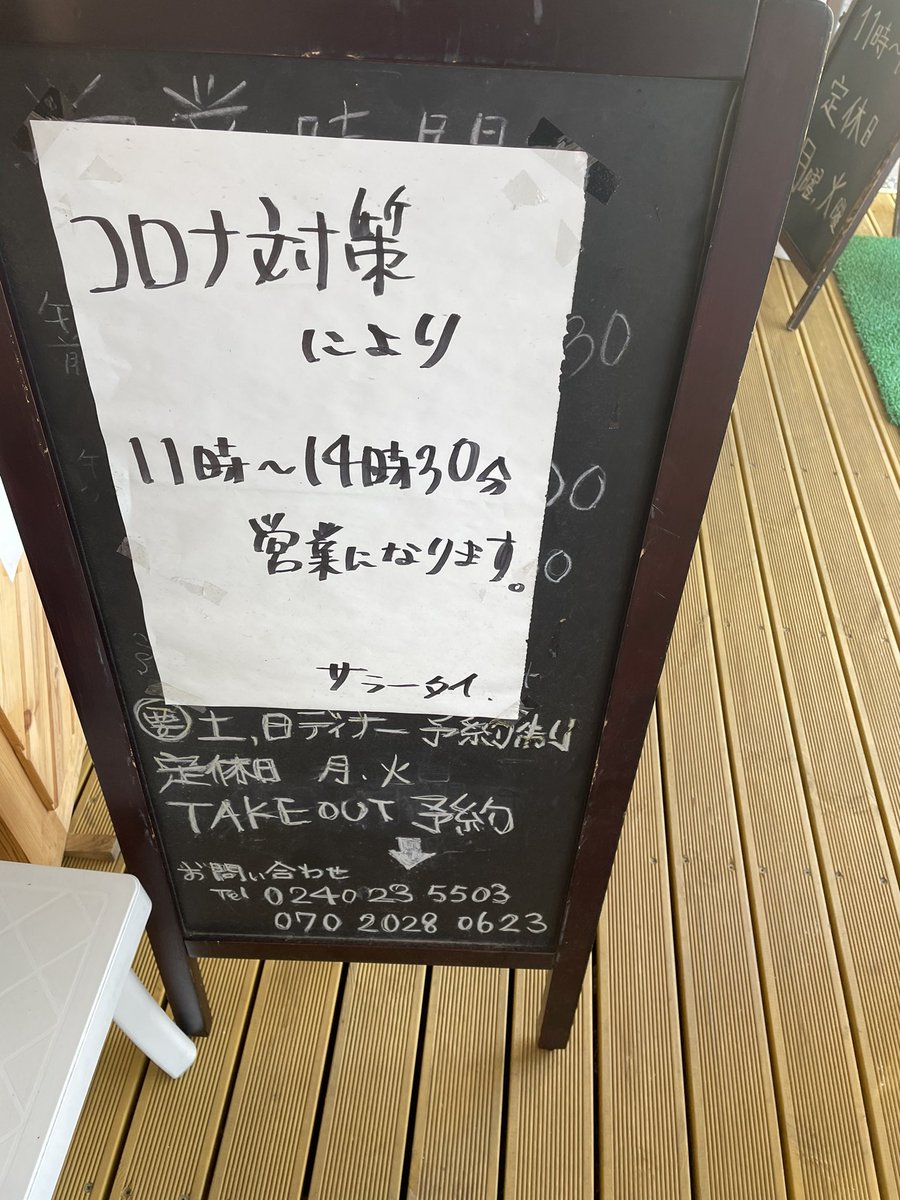 営業時間
コロナ対策
により
11時〜14時30分
営業になります。
サラータイ.
午前
30
00
0
㊕土,日ディナー 予約制
定休日 月.火
TAKE OUT 予約
お問い合わせ
Tel 0240 23 5503
070 2028 0623
11時〜
定休日
月曜,火曜